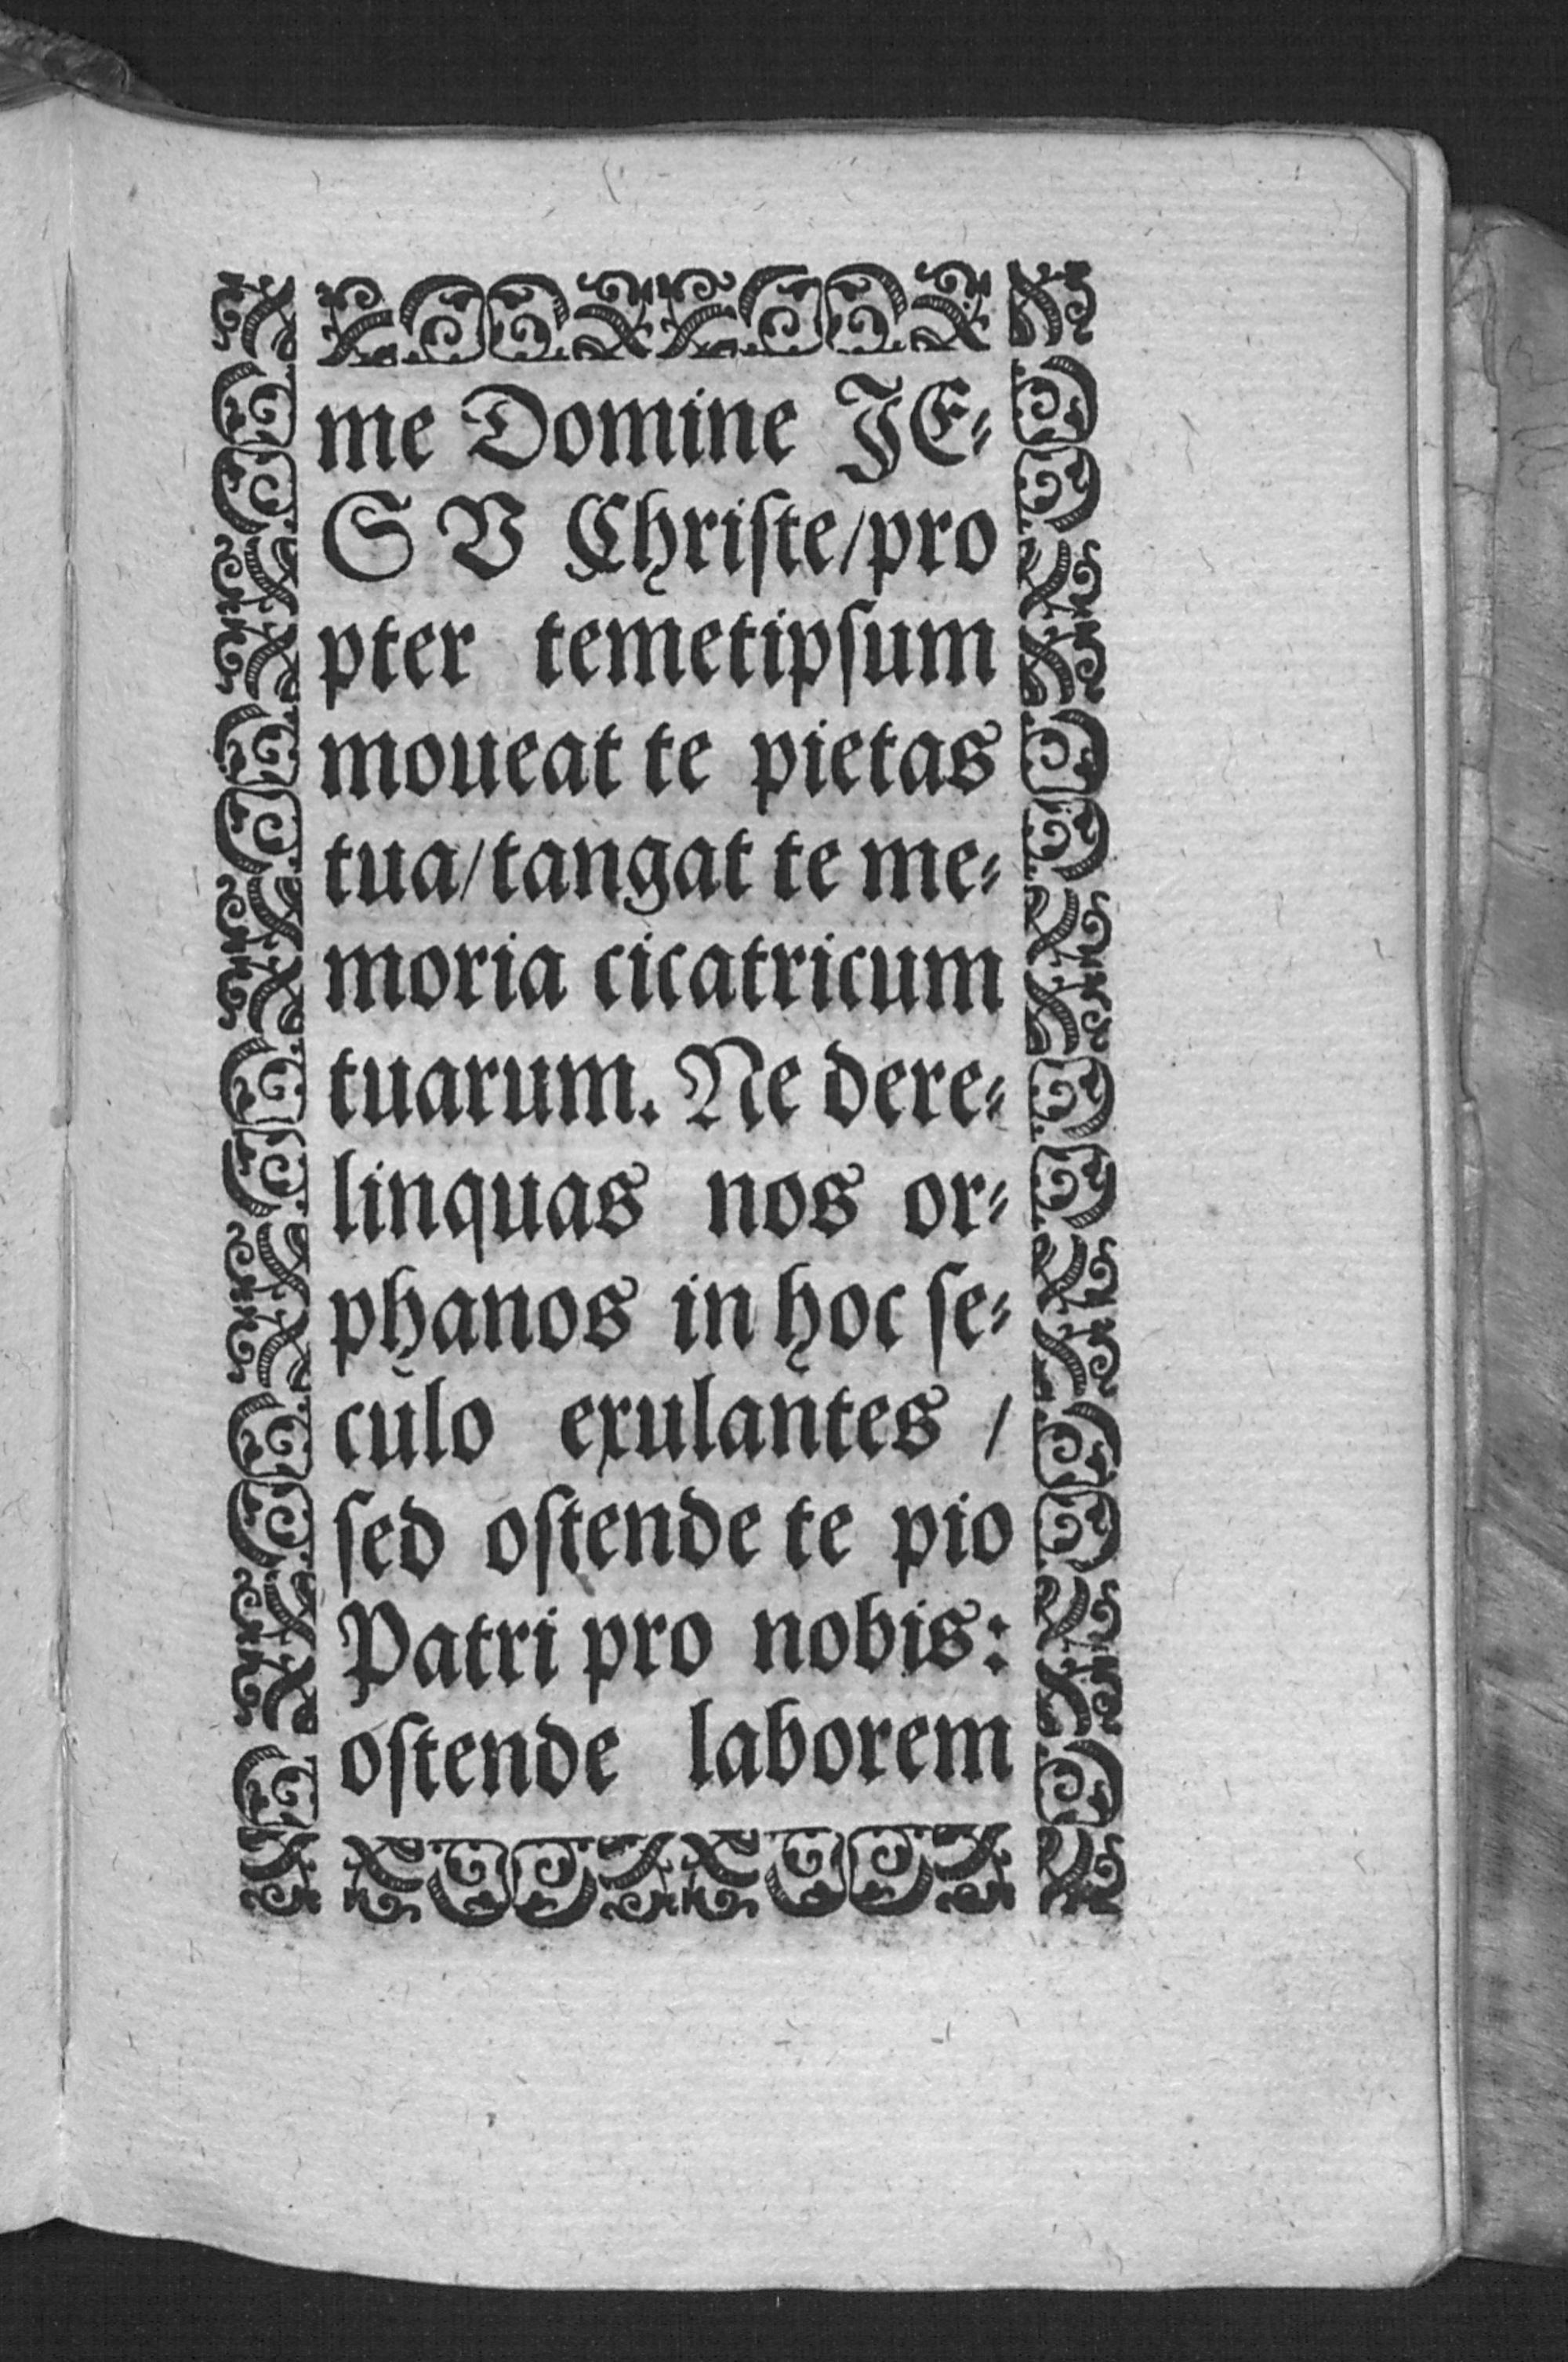 me Domine JE⸗
S V Chriſte/pro
pter temetipſum
moueat te pietas
tua/tangat te me⸗
moria cicatricum
tuarum. Ne dere⸗
linquas nos or⸗
phanos in hoc ſe⸗
culo exulantes /
ſed oſtende te pio
Patri pro nobis:
oſtende laborem